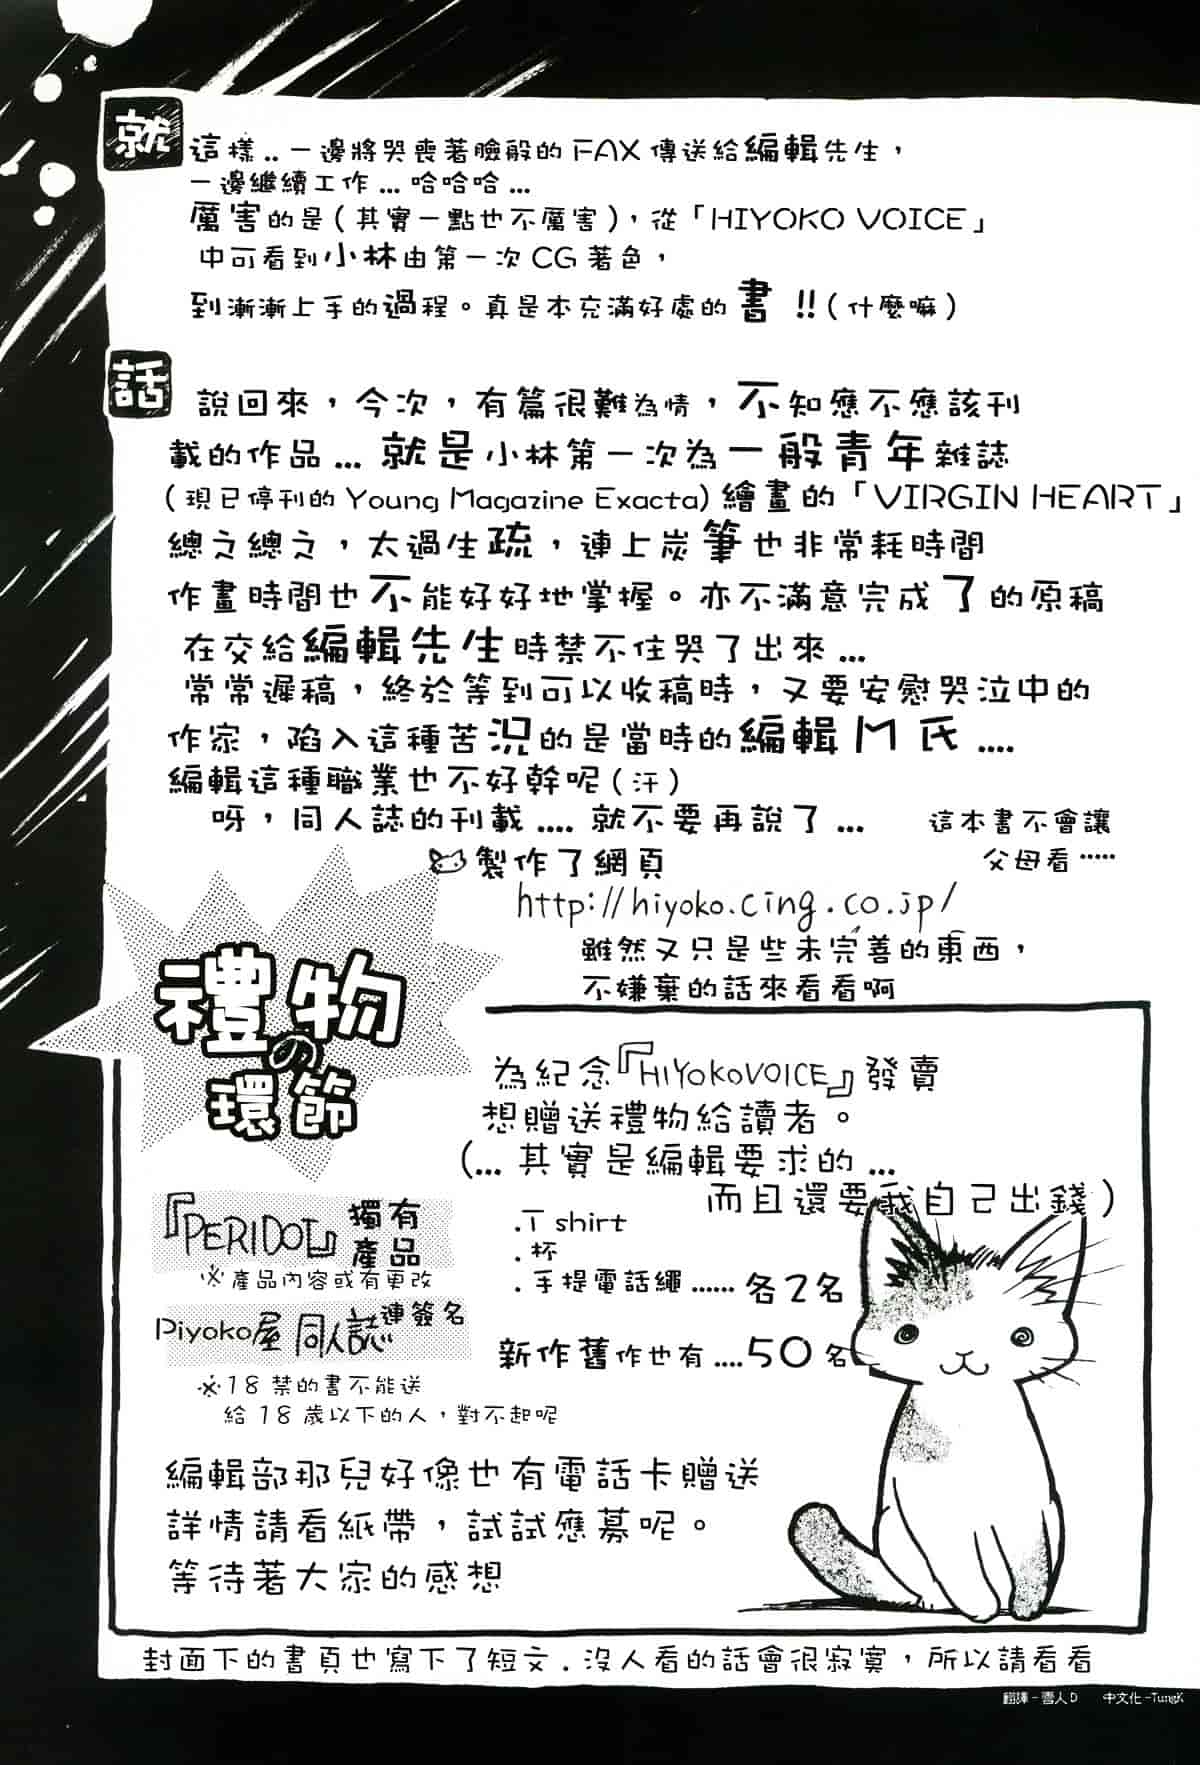 就這樣..一邊將哭喪著臉般的 FAX 傳送給編輯先生，
一邊繼續工作...哈哈哈...
厲害的是(其實一點也不厲害)，從「HIYOKO VOICE」
中可看到小林由第一次 CG 著色，
到漸漸上手的過程。真是本充滿好處的書 !!(什麼嘛)
話說回來，今次，有篇很難為情，不知應不應該刊
載的作品...就是小林第一次為一般青年雜誌
(現已停刊的 Young Magazine Exacta)繪畫的「VIRGIN HEART」
總之總之，太過生疏，連上炭筆也非常耗時間
作畫時間也不能好好地掌握。亦不滿意完成了的原稿
在交給編輯先生時禁不住哭了出來...
常常遲稿，終於等到可以收稿時，又要安慰哭泣中的
作家，陷入這種苦況的是當時的編輯M氏....
編輯這種職業也不好幹呢(汗)
呀，同人誌的刊載....就不要再說了...
這本書不會讓
父母看……
製作了網頁
http://hiyoko.cing.co.jp/
雖然又只是些未完善的東西，
不嫌棄的話來看看啊
禮物の
環節
為紀念『HIYOKOVOICE』發賣
想贈送禮物給讀者。
(...其實是編輯要求的...
而且還要我自己出錢)
『PERIDOT』獨有
產品
※產品內容或有更改
.T shirt
.杯
.手提電話繩......各2名
Piyoko屋 同人誌連簽名
新作舊作也有....50名
※18 禁的書不能送
給 18 歲以下的人，對不起呢
編輯部那兒好像也有電話卡贈送
詳情請看紙帶，試試應募呢。
等待著大家的感想
封面下的書頁也寫下了短文.沒人看的話會很寂寞，所以請看看
翻譯-雪人D 中文化-TungK